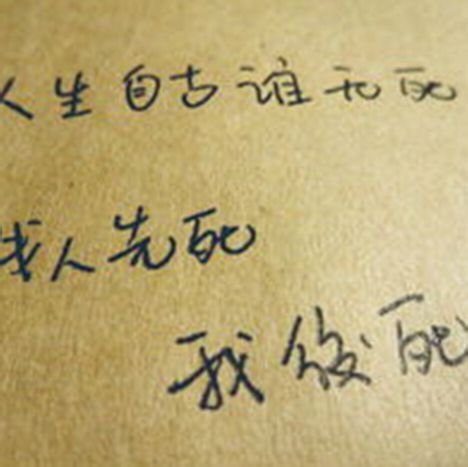 人生自古谁无死
贱人先死
我後死